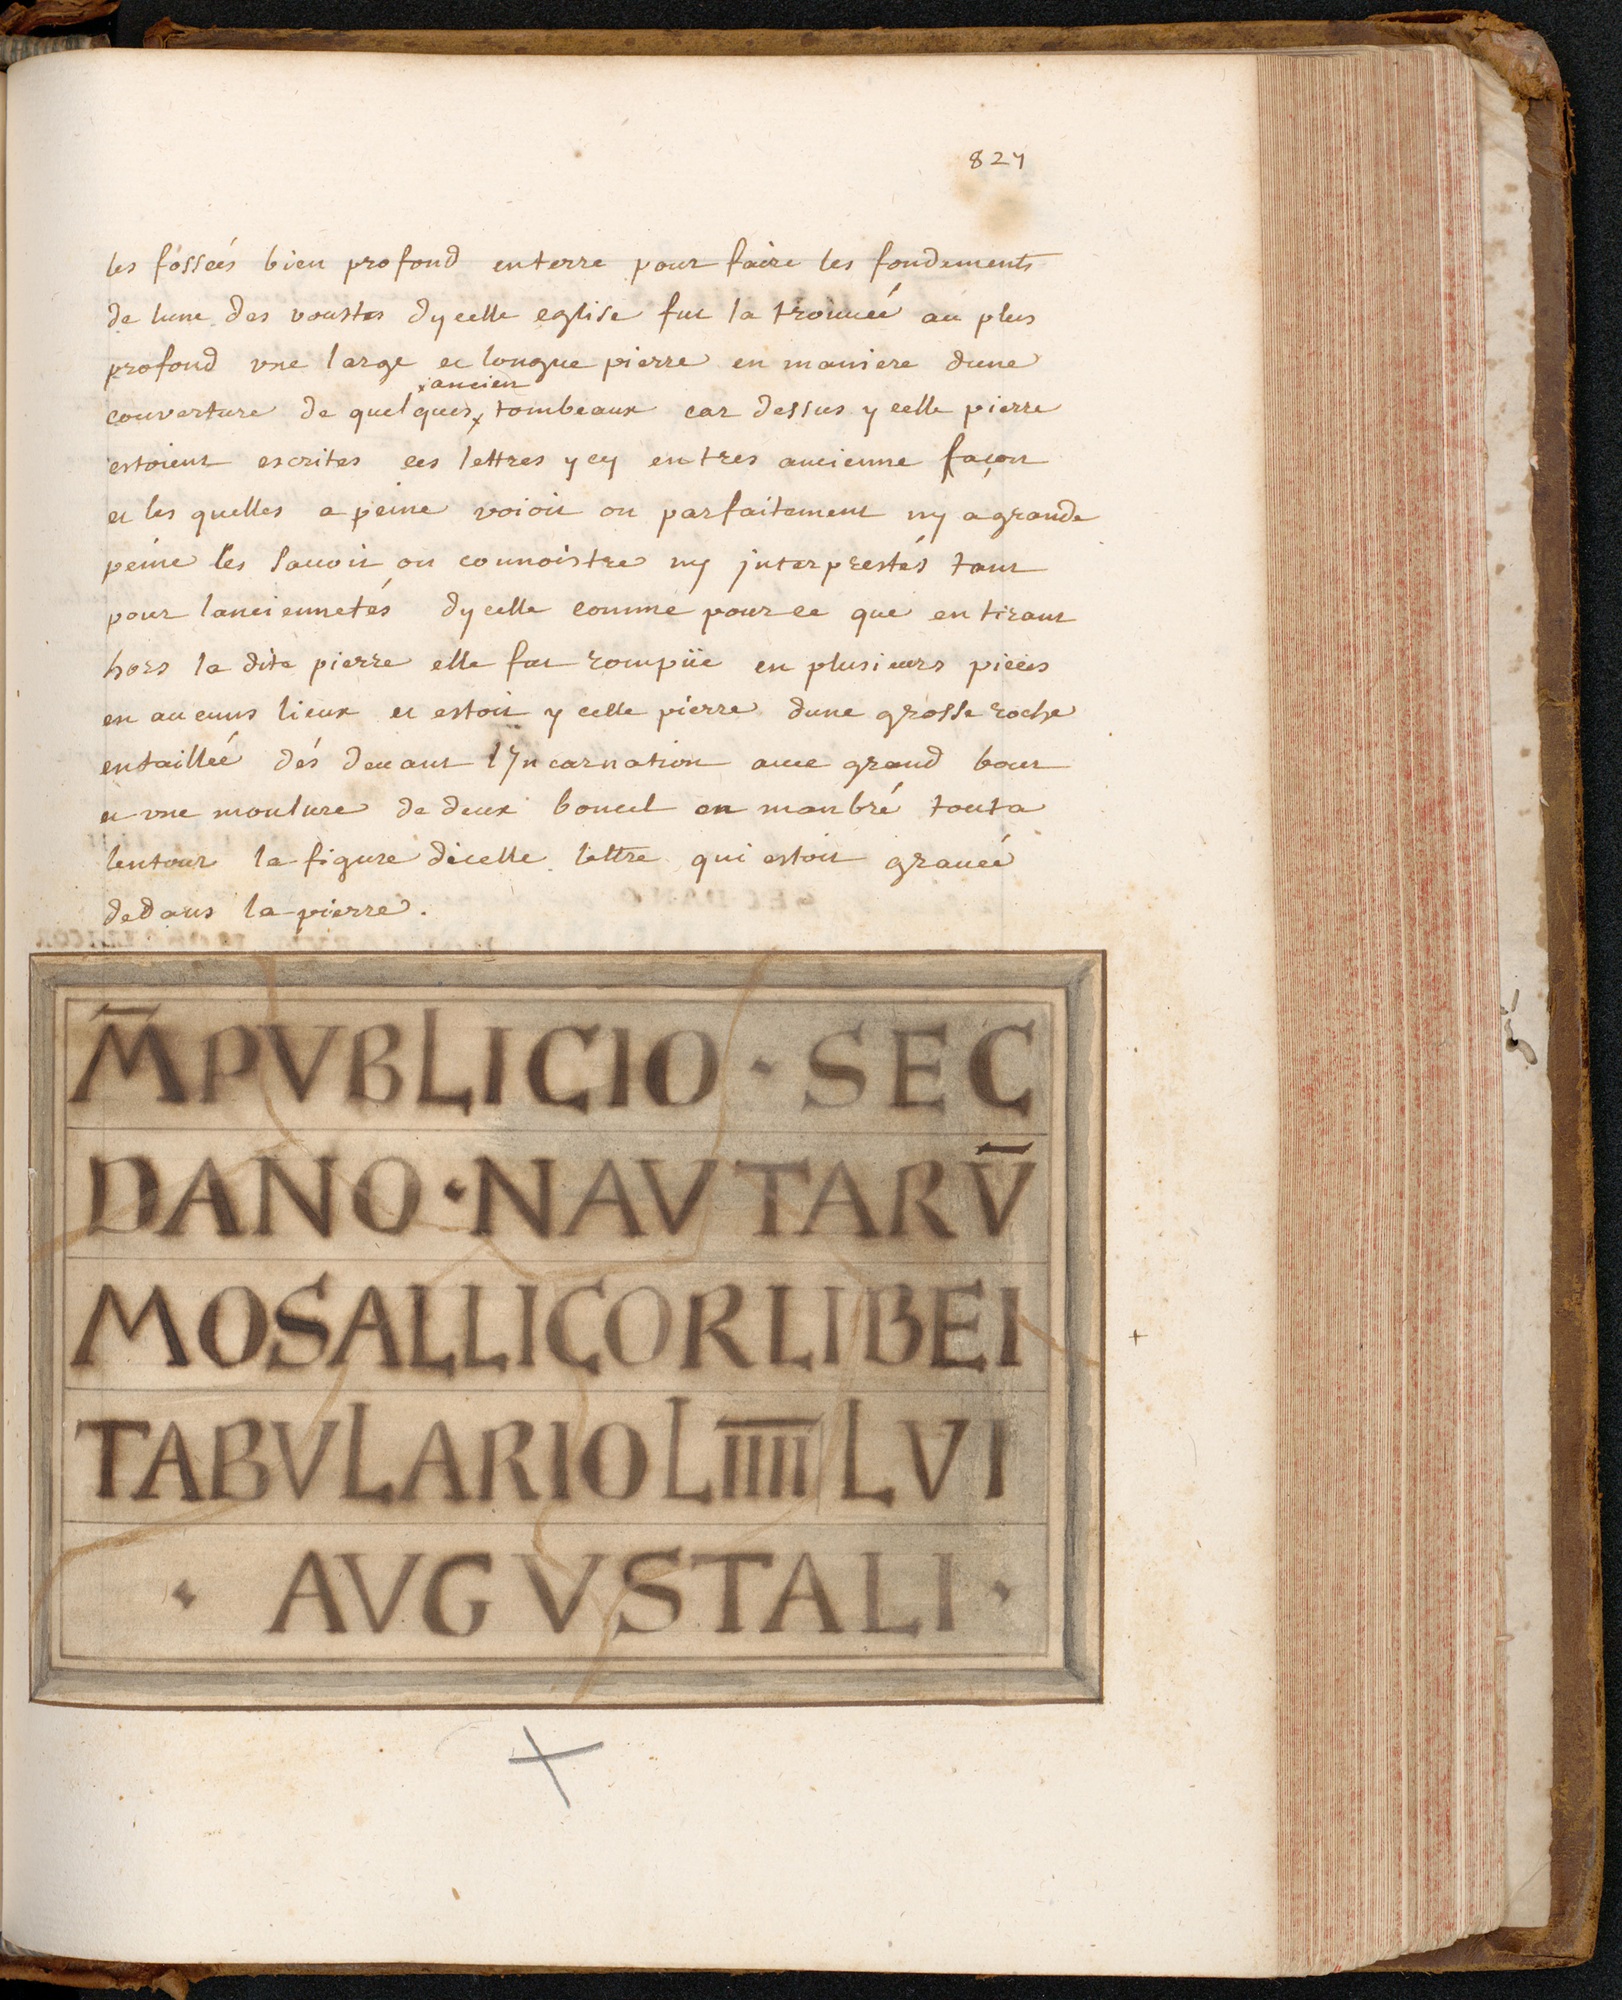 827
les fósseés bien profond enterre pour faire les fondements
de lune des voustes dycelle eglise fut la trouueé au plus
profond vne large et longue pierre en maniere dune
ancien
couverture de quelques tombeaux car dessus ycelle pierre
estoient escrites ces lettres ycy entres ancienne façon
et les quelles a peine voioit on parfaitement ny agrande
peine les sauoir ou connoistre ny jnterprestés tant
pour lanciennetés dycelle comme pource que entirant
hors la dite pierre elle fut rompüe en plusieurs pieces
en aucuns lieux et estoit ycelle pierre dune grosse roche
entailleé dés deuant lYncarnation auec grand bout
et vne moulure de deux boucel en manbré touta
lentour la figure dicelle lettre qui estoit graueé
dedans la pierre.
M̅PVBLICIO · SEC
DANO · NAVTARV̅
MOSALLICORLIBEI
TABVLARIOLI̅I̅I̅I̅I̅ LVI
· AVGVSTALI ·